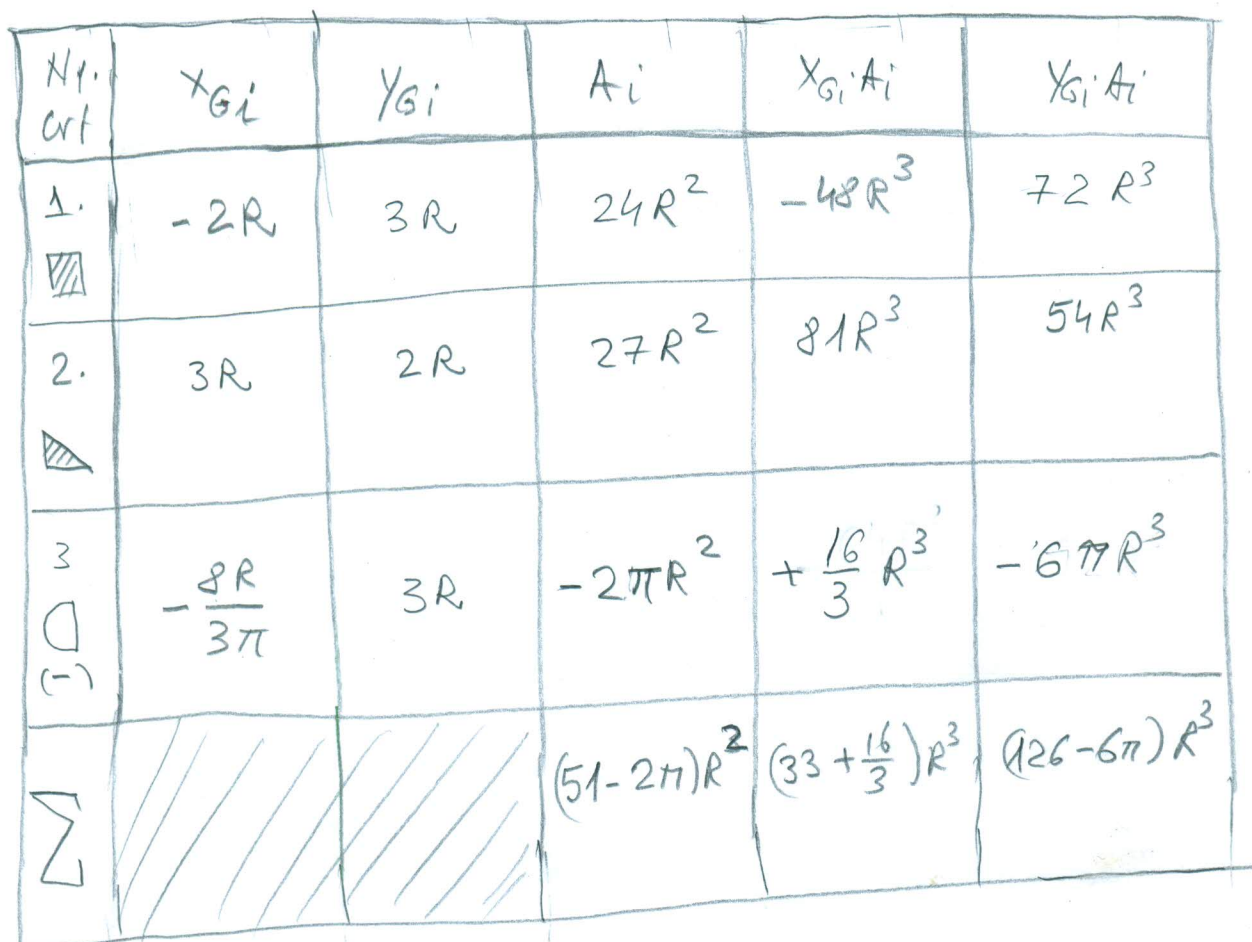 Nr. crt X_{Gi} Y_{Gi} A_i X_{Gi}·A_i Y_{Gi}·A_i
1. -2R 3R 24R² -48R³ 72R³
2. 3R 2R 27R² 81R³ 54R³
3 (-) -8R/3π 3R -2πR² +16/3 R³ -6πR³
Σ (51-2π)R² (33+16/3)R³ (126-6π)R³